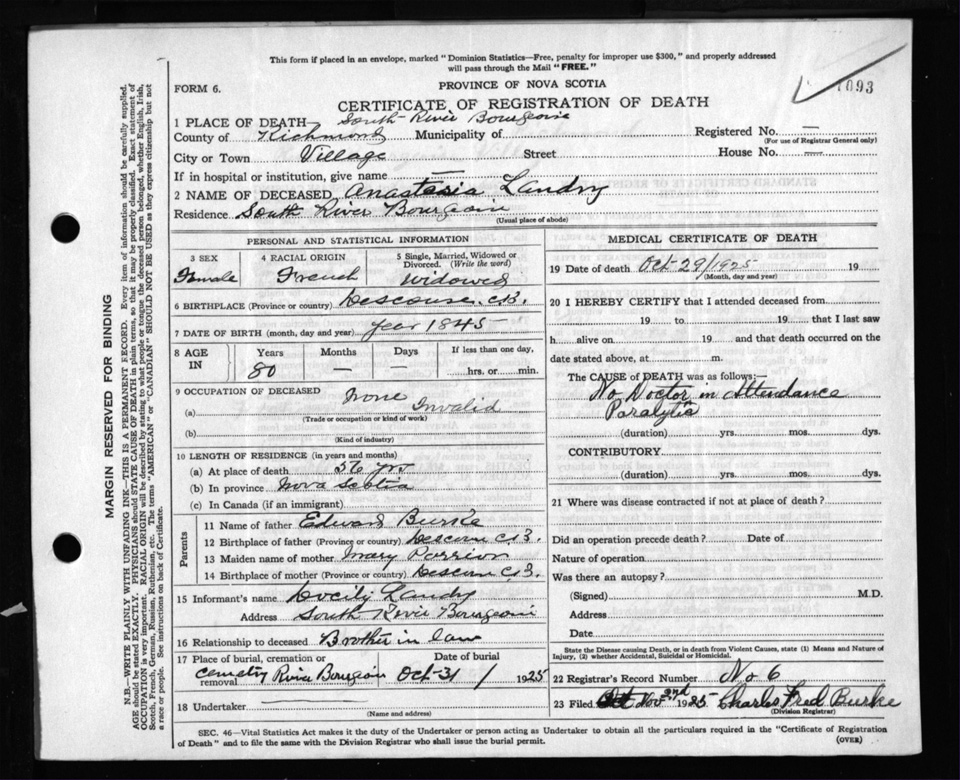 This form if placed in an envelope, marked "Dominion Statistics—Free, penalty for improper use $300," and properly addressed
will pass through the Mail "FREE."
FORM 6.
PROVINCE OF NOVA SCOTIA
1093
CERTIFICATE OF REGISTRATION OF DEATH
1 PLACE OF DEATH South River Bourgeois
County of Richmond Municipality of Registered No. —
(For use of Registrar General only)
City or Town Village Street House No. —
If in hospital or institution, give name —
2 NAME OF DECEASED Anastasia Landry
Residence South River Bourgeois
(Usual place of abode)
PERSONAL AND STATISTICAL INFORMATION
3 SEX 4 RACIAL ORIGIN 5 Single, Married, Widowed or
Divorced. (Write the word)
Female French Widowed
6 BIRTHPLACE (Province or country) Descouse. C.B.
7 DATE OF BIRTH (month, day and year) year 1845
8 AGE IN Years Months Days If less than one day,
80 — — hrs. or min.
9 OCCUPATION OF DECEASED None
(a) Invalid
(Trade or occupation or kind of work)
(b)
(Kind of industry)
10 LENGTH OF RESIDENCE (in years and months)
(a) At place of death 56 yrs
(b) In province Nova Scotia
(c) In Canada (if an immigrant)
Parents
11 Name of father Edward Burke
12 Birthplace of father (Province or country) Descous C.B.
13 Maiden name of mother Mary
14 Birthplace of mother (Province or country) Descous C.B.
15 Informant's name Landry
Address South River Bourgeois
16 Relationship to deceased Brother in law
17 Place of burial, cremation or Date of burial
removal Cemetry River Bourgeois Oct-31 / 1925
18 Undertaker
(Name and address)
MEDICAL CERTIFICATE OF DEATH
19 Date of death Oct-29/1925 19
(Month, day and year)
20 I HEREBY CERTIFY that I attended deceased from
19 to 19 that I last saw
h alive on 19 and that death occurred on the
date stated above, at m.
The CAUSE of DEATH was as follows:—
No Doctor in Attendance
Paralytia
(duration) yrs. mos. dys.
CONTRIBUTORY
(duration) yrs. mos. dys.
21 Where was disease contracted if not at place of death?
Did an operation precede death? Date of
Nature of operation
Was there an autopsy?
(Signed) M.D.
Address
Date
State the Disease causing Death, or in death from Violent Causes, state (1) Means and Nature of
Injury, (2) whether Accidental, Suicidal or Homicidal.
22 Registrar's Record Number No 6
23 Filed Nov 2nd 1925 Charles Fred Burke
(Division Registrar)
SEC. 46—Vital Statistics Act makes it the duty of the Undertaker or person acting as Undertaker to obtain all the particulars required in the "Certificate of Registration
of Death" and to file the same with the Division Registrar who shall issue the burial permit.
(OVER)
MARGIN RESERVED FOR BINDING
N.B.—WRITE PLAINLY WITH UNFADING INK—THIS IS A PERMANENT RECORD. Every item of information should be carefully supplied.
AGE should be stated EXACTLY. PHYSICIANS should STATE CAUSE OF DEATH in plain terms, so that it may be properly classified. Exact statement of
OCCUPATION is very important. RACIAL ORIGIN will be described by stating to what people or tongue the deceased person belonged, whether English, Irish,
Scotch, French, German, Russian, Ruthenian, etc. The terms "AMERICAN" or "CANADIAN" SHOULD NOT BE USED as they express citizenship but not
a race or people. See instructions on back of Certificate.